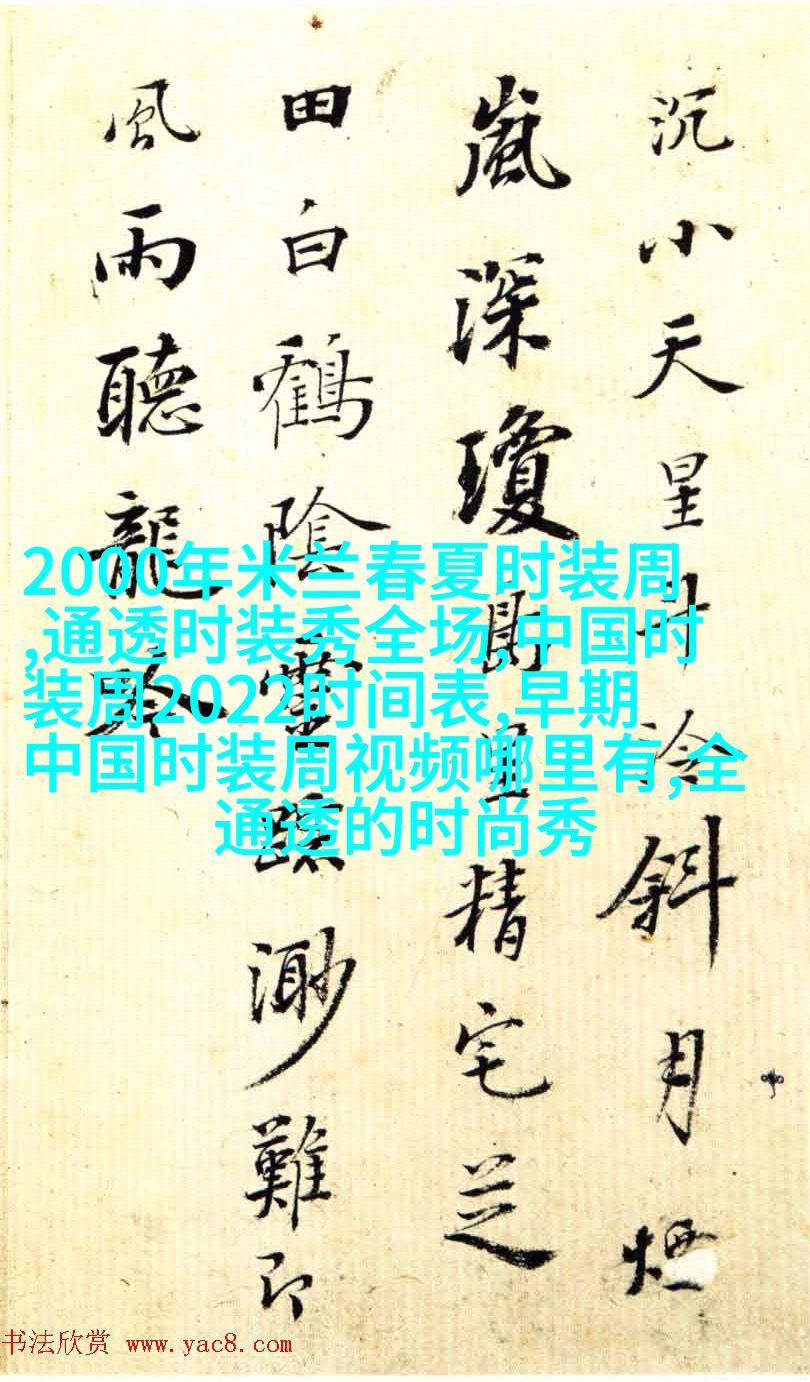 沉小天星冷斜月煙
嵐深瓊精宅芝
田白鶴陰靈蹤渺難即
風雨聽龍吟
2000年米兰春夏时装周
,通透时装秀全场,中国时
装周2022时间表,早期
中国时装周视频哪里有,全
通透的时尚秀
书法欣赏 www.yac8.com